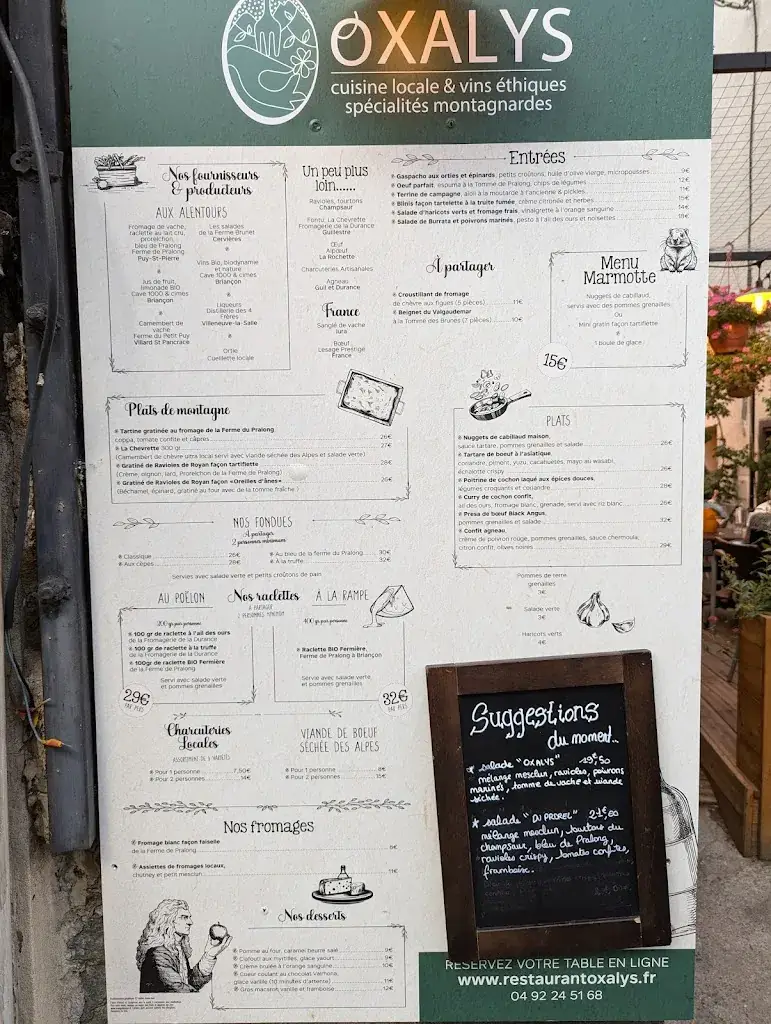 OXALYS
cuisine locale & vins éthiques
spécialités montagnardes
Nos fournisseurs
& producteurs
AUX ALENTOURS
Fromage de vache,
raclette au lait cru,
bleu de Pralong
Ferme de Pralong
Puy-St-Pierre
Jus de fruit,
limonade BIO
Cave 1000 & cimes
Briançon
Camembert de
vache
Ferme du Petit Puy
Villard St Pancrace
Les salades
de la Ferme Brunet
Cervières
Vins Bio, biodynamie
et nature
Cave 1000 & cimes
Briançon
Liqueurs
Distilleries des 4
Frères
Villeneuve-la-Salle
Ortie
Cueillette locale
Un peu plus
loin......
Ravioles, tourtons
Champsaur
Fontu, La Chevrette
Fromagerie de la Durance
Guillestre
Œuf
Alpœuf
La Rochette
Charcuteries Artisanales
Agneau
Guil et Durance
France
Sanglé de vache
Jura
Bœuf
Lesage Prestige
France
Entrées
Gaspacho aux orties et épinards, petits croûtons, huile d'olive vierge, micropousses 9€
Oeuf parfait, espuma à la Tomme de Pralong, chips de légumes 12€
Terrine de campagne, aïoli à la moutarde à l'ancienne & pickles 11€
Blinis façon tartelette à la truite fumée, crème citronnée et herbes 15€
Salade d'haricots verts et fromage frais, vinaigrette à l'orange sanguine 14€
Salade de Burrata et poivrons marinés, pesto à l'ail des ours et noisettes
À partager
Croustillant de fromage
de chèvre aux figues (5 pièces) 11€
Beignet du Valgaudemar
à la Tomme des Brunes (7 pièces) 10€
Menu
Marmotte
Nuggets de cabillaud,
servis avec des pommes grenailles
Ou
Mini gratin façon tartiflette
1 boule de glace
15€
Plats de montagne
Tartine gratinée au fromage de la Ferme du Pralong,
coppa, tomate confite et câpres 26€
La Chevrette 300 gr 27€
(Camembert de chèvre ultra local servi avec viande séchée des Alpes et salade verte)
Gratiné de Ravioles de Royan façon tartiflette 28€
(Crème, oignon, lard, Prorelchon de la Ferme de Pralong)
Gratiné de Ravioles de Royan façon «Oreilles d'ânes» 26€
(Béchamel, épinard, gratiné au four avec de la tomme fraîche)
PLATS
Nuggets de cabillaud maison,
sauce tartare, pommes grenailles et salade 26€
Tartare de boeuf à l'asiatique,
coriandre, piment, yuzu, cacahuètes, mayo au wasabi,
échalotte crispy 26€
Poitrine de cochon laqué aux épices douces,
légumes croquants et coriandre 28€
Curry de cochon confit,
ail des ours, fromage blanc, grenade, servi avec riz blanc 26€
Presa de bœuf Black Angus,
pommes grenailles et salade 32€
Confit agneau,
crème de poivron rouge, pommes grenailles, sauce chermoula,
citron confit, olives noires 29€
NOS FONDUES
À partager
2 personnes minimum
Classique 26€
Aux cèpes 28€
Au bleu de la ferme du Pralong 30€
À la truffe 32€
Servies avec salade verte et petits croûtons de pain
Pommes de terre
grenailles
3€
Salade verte
3€
Haricots verts
4€
Nos raclettes
À PARTAGER
2 PERSONNES MINIMUM
AU POËLON
200 gr par personne
100 gr de raclette à l'ail des ours
de la Fromagerie de la Durance
100 gr de raclette à la truffe
de la Fromagerie de la Durance
100gr de raclette BIO Fermière
de la Ferme de Pralong
Servi avec salade verte
et pommes grenailles
29€
PAR PERS
À LA RAMPE
400 gr par personne
Raclette BIO Fermière,
Ferme de Pralong à Briançon
Servie avec salade verte
et pommes grenailles
32€
PAR PERS
Charcuteries
Locales
ASSORTIMENT DE 5 VARIÉTÉS
Pour 1 personne 7,50€
Pour 2 personnes 14€
VIANDE DE BOEUF
SÉCHÉE DES ALPES
Pour 1 personne 8€
Pour 2 personnes 15€
Nos fromages
Fromage blanc façon faiselle
de la Ferme de Pralong 8€
Assiettes de fromages locaux,
chutney et petit mesclun 11€
Nos desserts
Pomme au four, caramel beurre salé 9€
Clafouti aux myrtilles, glace yaourt 9€
Crème brûlée à l'orange sanguine 10€
Coeur coulant au chocolat Valrhona,
glace vanille (10 minutes d'attente) 11€
Gros macaron vanille et framboise 12€
Suggestions
du moment..
* salade "OXALYS" 19€,50
mélange mesclun, ravioles, poivrons
marinés, tomme de vache et viande
séchée.
* salade "DU PROREL" 21€,00
mélange mesclun, tourtons du
champsaur, bleu de Pralong,
ravioles crispy, tomates confites,
framboise.
RÉSERVEZ VOTRE TABLE EN LIGNE
www.restaurantoxalys.fr
04 92 24 51 68